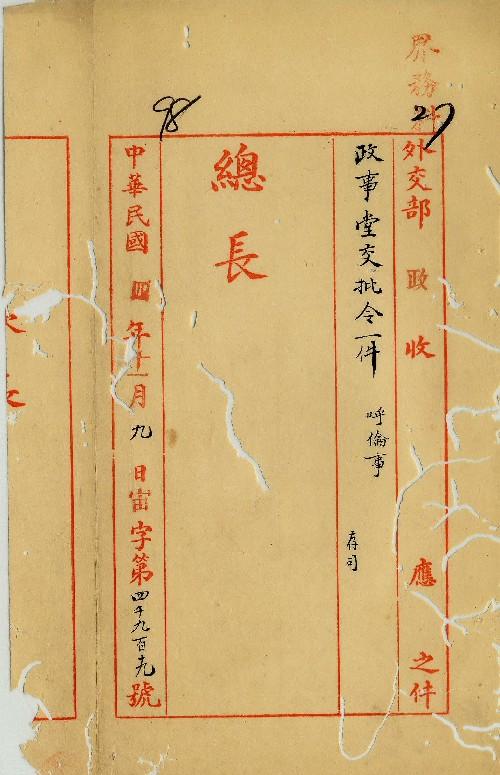 界務科
27
外交部 政 收 應 之件
政事堂交批令一件
呼倫事
存司
總長
98
中華民國四年十一月九日宙字第四千九百九號